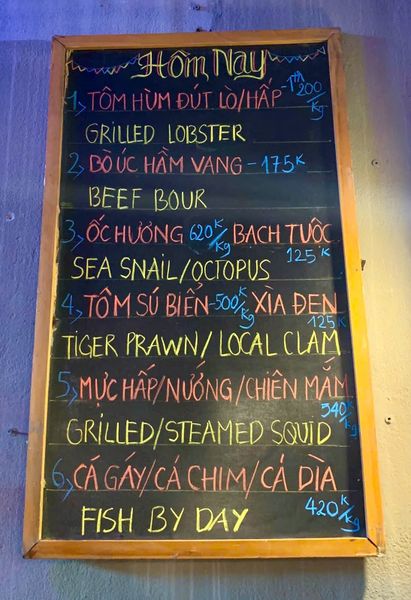 Hôm Nay
1, TÔM HÙM ĐÚT LÒ/HẤP - 1TR200/Kg
GRILLED LOBSTER
2, BÒ ÚC HẦM VANG - 175K
BEEF BOUR
3, ỐC HƯƠNG 620K/Kg BẠCH TUỘC 125K
SEA SNAIL/OCTOPUS
4, TÔM SÚ BIỂN - 500K/Kg XÌA ĐEN 125K
TIGER PRAWN/LOCAL CLAM
5, MỰC HẤP/NƯỚNG/CHIÊN MẮM 540K/Kg
GRILLED/STEAMED SQUID
6, CÁ GÁY/CÁ CHIM/CÁ DÌA 420K/Kg
FISH BY DAY